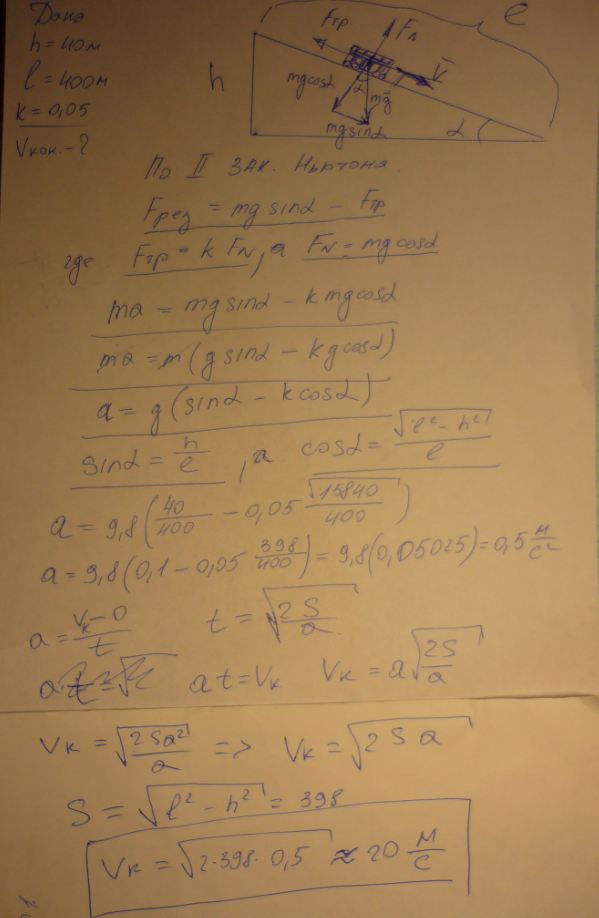 Дано
h = 40м
l = 400м
k = 0,05
Vкон. - ?
Fтр
FN
l
h
V
mgcosα
α
mg
mgsinα
α
По II зак. Ньютона
Fрез = mg sinα - Fтр
где Fтр = k FN, а FN = mg cosα
ma = mg sinα - k mg cosα
ma = m(g sinα - k g cosα)
a = g(sinα - k cosα)
sinα = h/l, а cosα = √(l² - h²)/l
a = 9,8(40/400 - 0,05 √15840/400)
a = 9,8(0,1 - 0,05 398/400) = 9,8(0,05025) = 0,5 м/с²
a = (Vк - 0)/t t = √(2S/a)
at = Vк Vк = a√(2S/a)
Vк = √(2Sa²/a) => Vк = √(2Sa)
S = √(l² - h²) = 398
Vк = √(2·398·0,5) ≈ 20 м/с